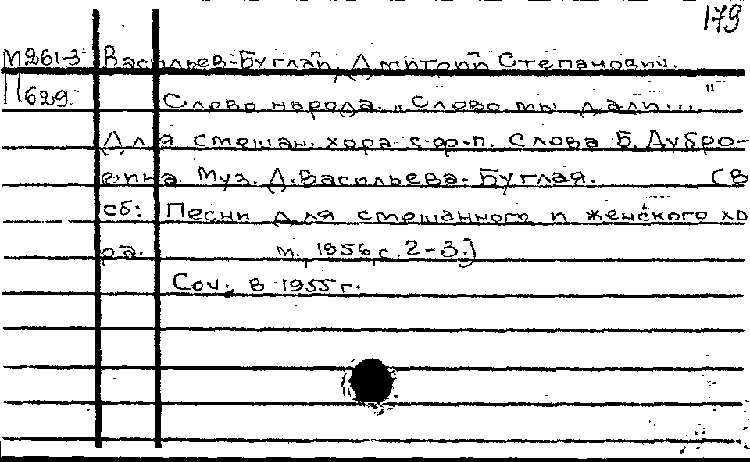 179
М261-3 Васильев-Буглай, Дмитрий Степанович.
П629. Слово народа. „Слово мы дали..."
Для смешан. хора с ф-п. Слова Б. Дубро-
вина Муз. Д. Васильева-Буглая. (В
сб: Песни для смешанного и женского хо
ра. М., 1956, с. 2-3.)
Соч. в 1955 г.